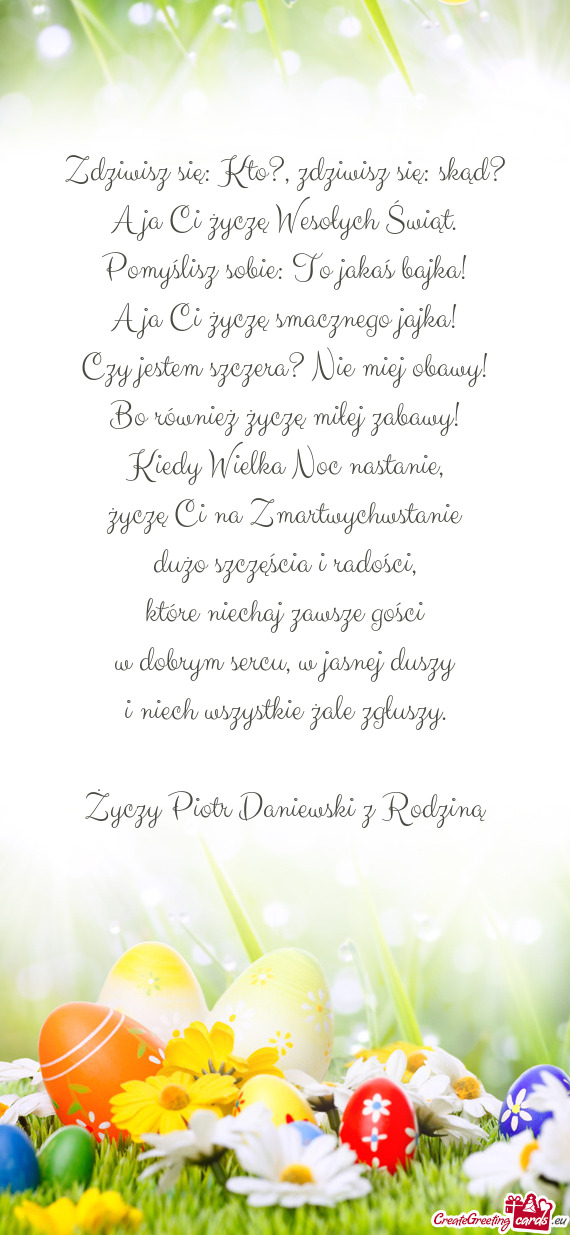 Zdziwisz się: Kto?, zdziwisz się: skąd?
A ja Ci życzę Wesołych Świąt.
Pomyślisz sobie: To jakaś bajka!
A ja Ci życzę smacznego jajka!
Czy jestem szczera? Nie miej obawy!
Bo również życzę miłej zabawy!
Kiedy Wielka Noc nastanie,
życzę Ci na Zmartwychwstanie
dużo szczęścia i radości,
które niechaj zawsze gości
w dobrym sercu, w jasnej duszy
i niech wszystkie żale zgłuszy.
Życzy Piotr Daniewski z Rodziną
CreateGreeting cards .eu